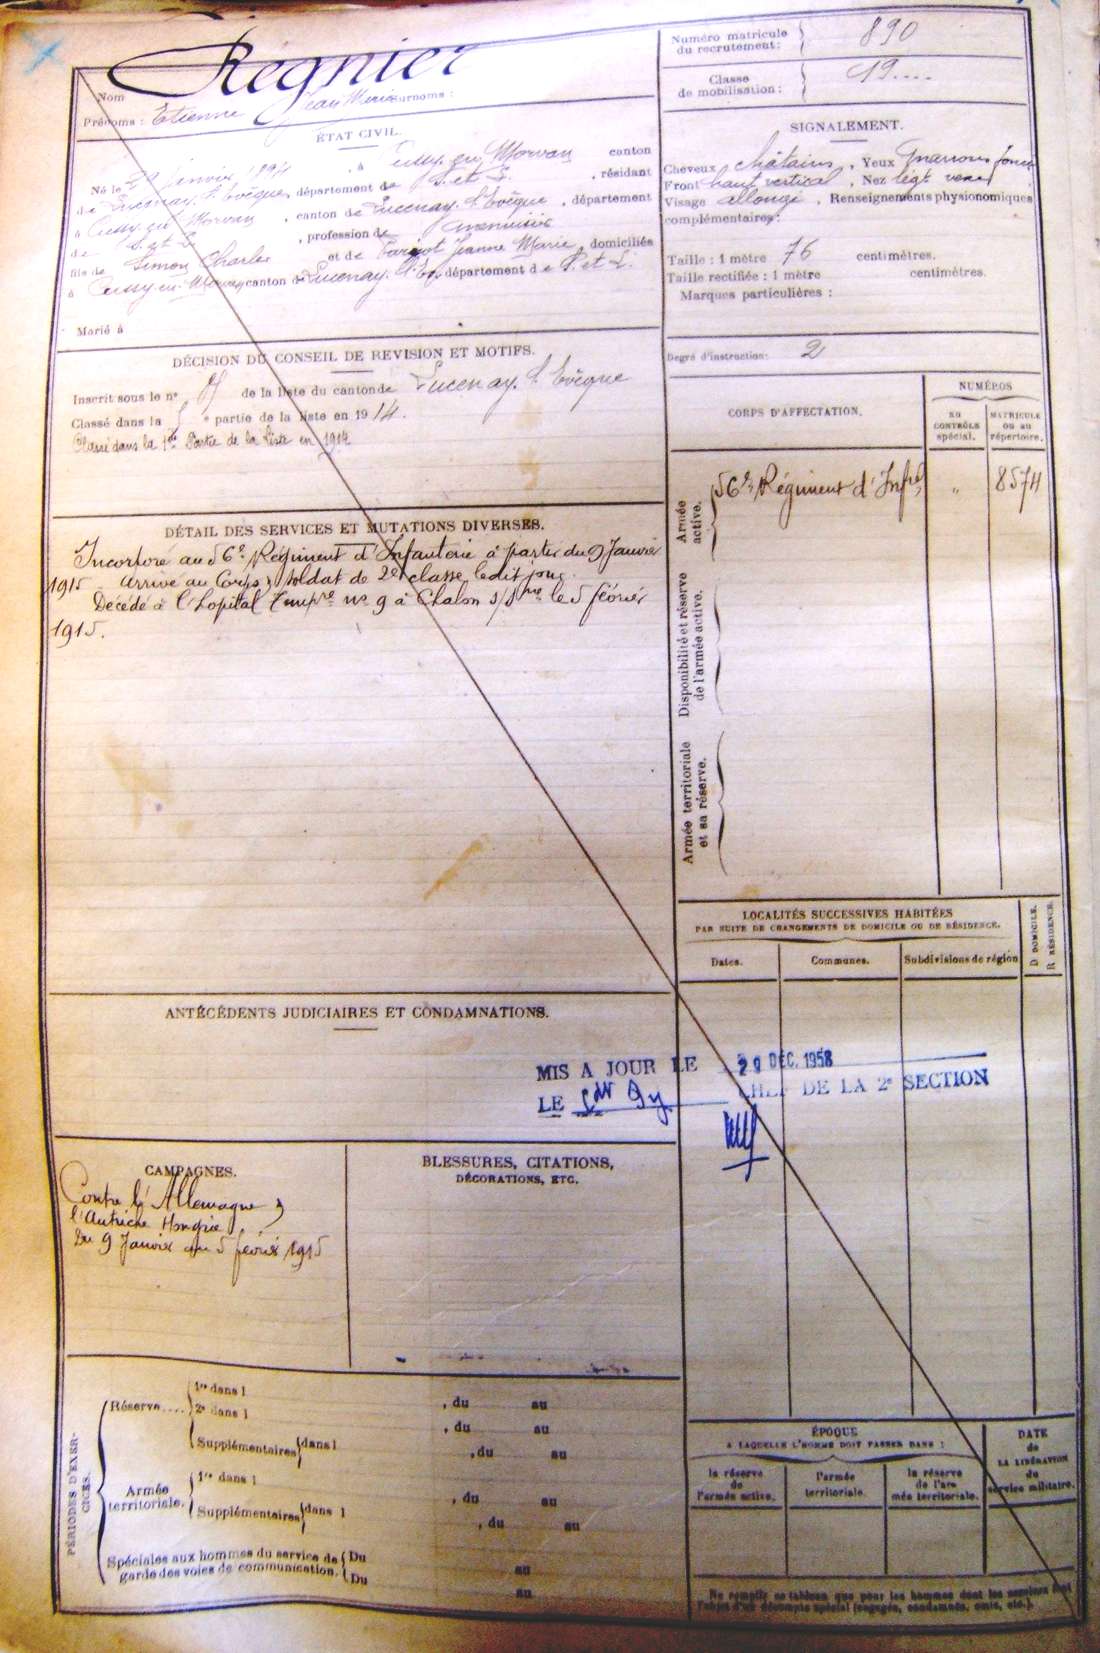 Régnier
Numéro matricule
du recrutement :
890
Nom
Prénoms : Etienne Jean Marie
surnoms :
Classe
de mobilisation :
19....
ÉTAT CIVIL.
Né le janvier 1894, à Cussy en Morvan canton
de Lucenay l'Evêque, département de S. et L., résidant
à Cussy en Morvan, canton de Lucenay l'Evêque, département
de S. et L., profession de menuisier
fils de Simon Charles et de Jeanne Marie, domiciliés
à Cussy en Morvan canton de Lucenay l'Ev. département de S. et L.
Marié à
SIGNALEMENT.
Cheveux châtains, Yeux marrons foncés
Front haut vertical, Nez légt vexe
Visage allongé. Renseignements physionomiques
complémentaires :
Taille : 1 mètre 76 centimètres.
Taille rectifiée : 1 mètre centimètres.
Marques particulières :
Degré d'instruction : 2
DÉCISION DU CONSEIL DE REVISION ET MOTIFS.
Inscrit sous le n° de la liste du canton de Lucenay l'Evêque
Classé dans la e partie de la liste en 1914.
Classé dans la 1re Partie de la liste en 1914
CORPS D'AFFECTATION.
NUMÉROS
AU
CONTRÔLE
spécial.
MATRICULE
OU AU
répertoire.
Armée
active.
56e Régiment d'Infie
"
8574
Disponibilité et réserve
de l'armée active.
Armée territoriale
et sa réserve.
DÉTAIL DES SERVICES ET MUTATIONS DIVERSES.
Incorporé au 56e Régiment d'Infanterie à partir du 9 Janvier
1915. Arrivé au Corps, soldat de 2e classe ledit jour.
Décédé à l'hopital Tempre n° 9 à Chalon s/Sne le 5 février
1915.
LOCALITÉS SUCCESSIVES HABITÉES
PAR SUITE DE CHANGEMENTS DE DOMICILE OU DE RÉSIDENCE.
D DOMICILE.
R RÉSIDENCE.
Dates.
Communes.
Subdivisions de région
ANTÉCÉDENTS JUDICIAIRES ET CONDAMNATIONS.
MIS A JOUR LE 29 DEC. 1958
LE CHEF DE LA 2e SECTION
CAMPAGNES.
Contre l'Allemagne,
l'Autriche Hongrie
Du 9 Janvier au 5 février 1915
BLESSURES, CITATIONS,
DÉCORATIONS, ETC.
PÉRIODES D'EXER-
CICES.
Réserve....
1re dans l , du au
2e dans l , du au
Supplémentaires dans l , du au
Armée
territoriale.
1re dans l , du au
Supplémentaires dans l , du au
Spéciales aux hommes du service de
garde des voies de communication.
Du au
Du au
ÉPOQUE
A LAQUELLE L'HOMME DOIT PASSER DANS :
la réserve
de
l'armée active.
l'armée
territoriale.
la réserve
de l'ar-
mée territoriale.
DATE
de
LA LIBÉRATION
du
service militaire.
Ne remplir ce tableau que pour les hommes dont les services font
l'objet d'un décompte spécial (engagés, condamnés, omis, etc.).